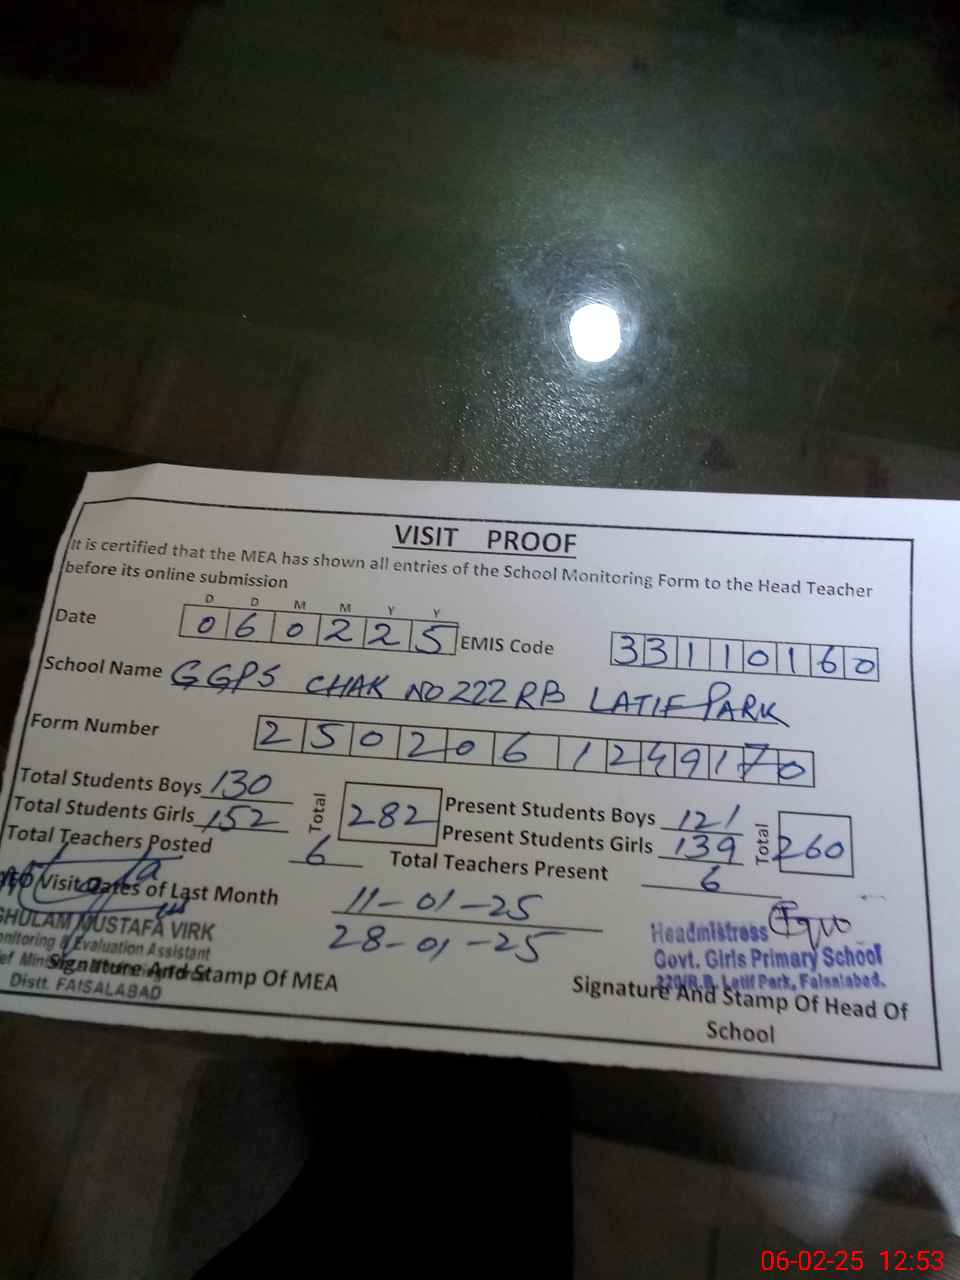 VISIT PROOF
It is certified that the MEA has shown all entries of the School Monitoring Form to the Head Teacher
before its online submission
D D M M Y Y
Date 060225 EMIS Code 33110160
School Name GGPS CHAK NO 222 RB LATIF PARK
Form Number 250206 1249170
Total Students Boys 130 Total 282 Present Students Boys 121 Total 260
Total Students Girls 152 Present Students Girls 139
Total Teachers Posted 6 Total Teachers Present 6
Visit Dates of Last Month 11-01-25
28-01-25
GHULAM MUSTAFA VIRK
Monitoring & Evaluation Assistant
Distt. FAISALABAD
Signature And Stamp Of MEA
Headmistress
Govt. Girls Primary School
220/R.B. Latif Park, Faisalabad.
Signature And Stamp Of Head Of
School
06-02-25 12:53